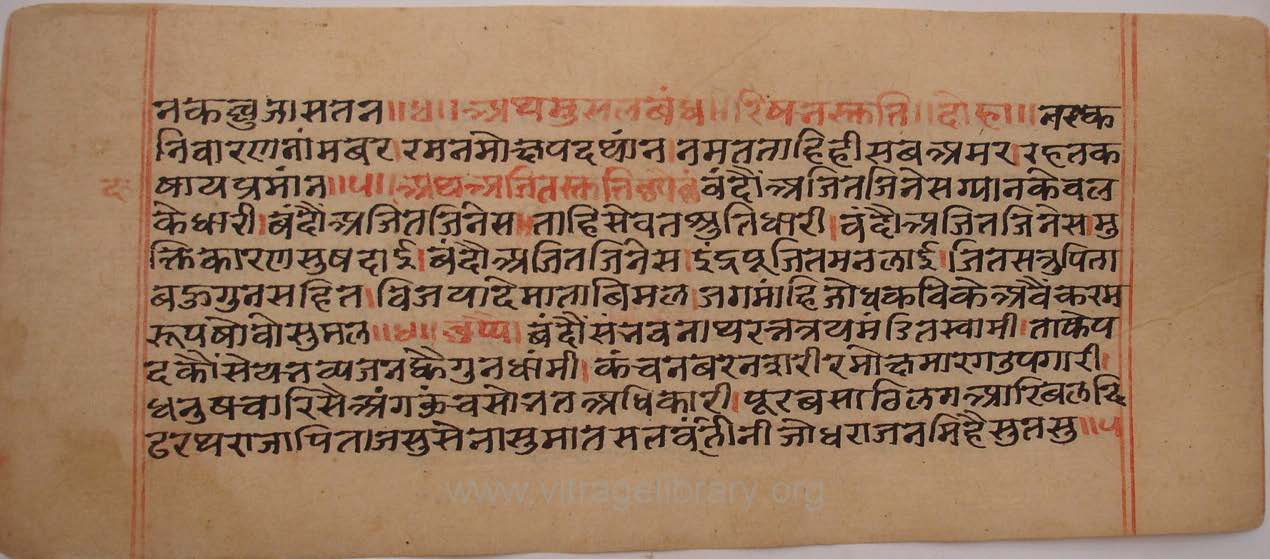 नकछुजासतन ॥४॥ अथमुसलबंध ॥ रिषनस्तुति ॥ दोहा ॥ नरक
निवारणनांमबर रमनमोछपदथांन नमतताहिहीसबअमर रहतक
षायप्रमांन ॥५॥ अथअजितस्तुति बंदौंअजितजिनेसग्यानकेवल
केधारी। बंदौंअजितजिनेस ताहिसेवतश्रुतिधारी। बंदौंअजितजिनेसमु
क्तिकारणसुषदाई। बंदौंअजितजिनेस। इंद्रपूजितमनलाई। जितसत्रुपिता
बऊगुनसहित। विजयादेमाताबिमल जगमांहिजोधकविकेअवैंकरम
रूपषोवोसुमल ॥६॥ छप्पै। बंदौंसंनवनाथरत्नत्रयमंडितस्वामी। ताकेप
दकौंसेयनव्यजनह्वैगुनधांमी। कंचनबरनशरीरमोछमारगउपगारी।
धनुषचारिसैअंगऊंचसोनतअधिकारी। पूरबसाठिलगआरिबल
ढरथराजापिताजसुसेनासुमातसतवंतीनीजोधराजनमिहैसुतसु ॥५
www.vitragelibrary.org